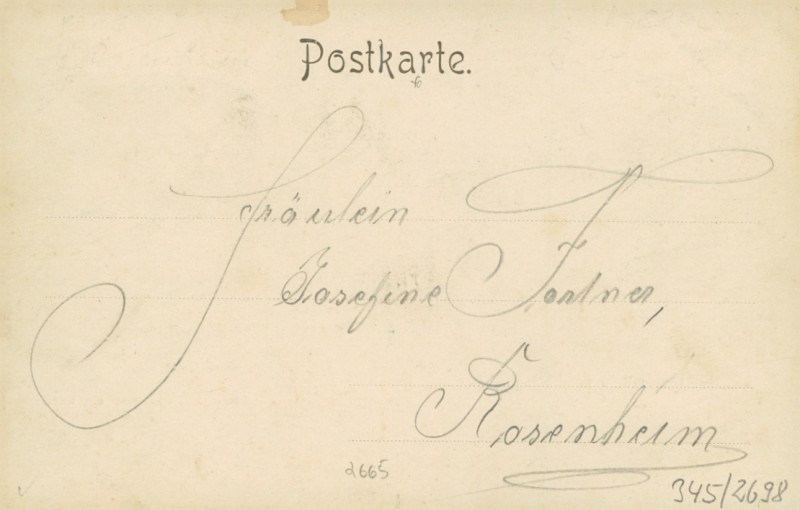 Postkarte.
Fräulein
Josefine Fortner,
Rosenheim
2665
345/2698